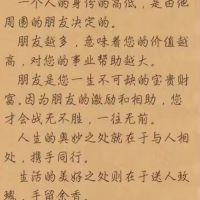 一个人的身价的高低，是由他
周围的朋友决定的。
朋友越多，意味着您的价值越
高，对您的事业帮助越大。
朋友是您一生不可缺的宝贵财
富。因为朋友的激励和相助，您
才会战无不胜，一往无前。
人生的奥妙之处就在于与人相
处，携手同行。
生活的美好之处则在于送人玫
瑰，手留余香。